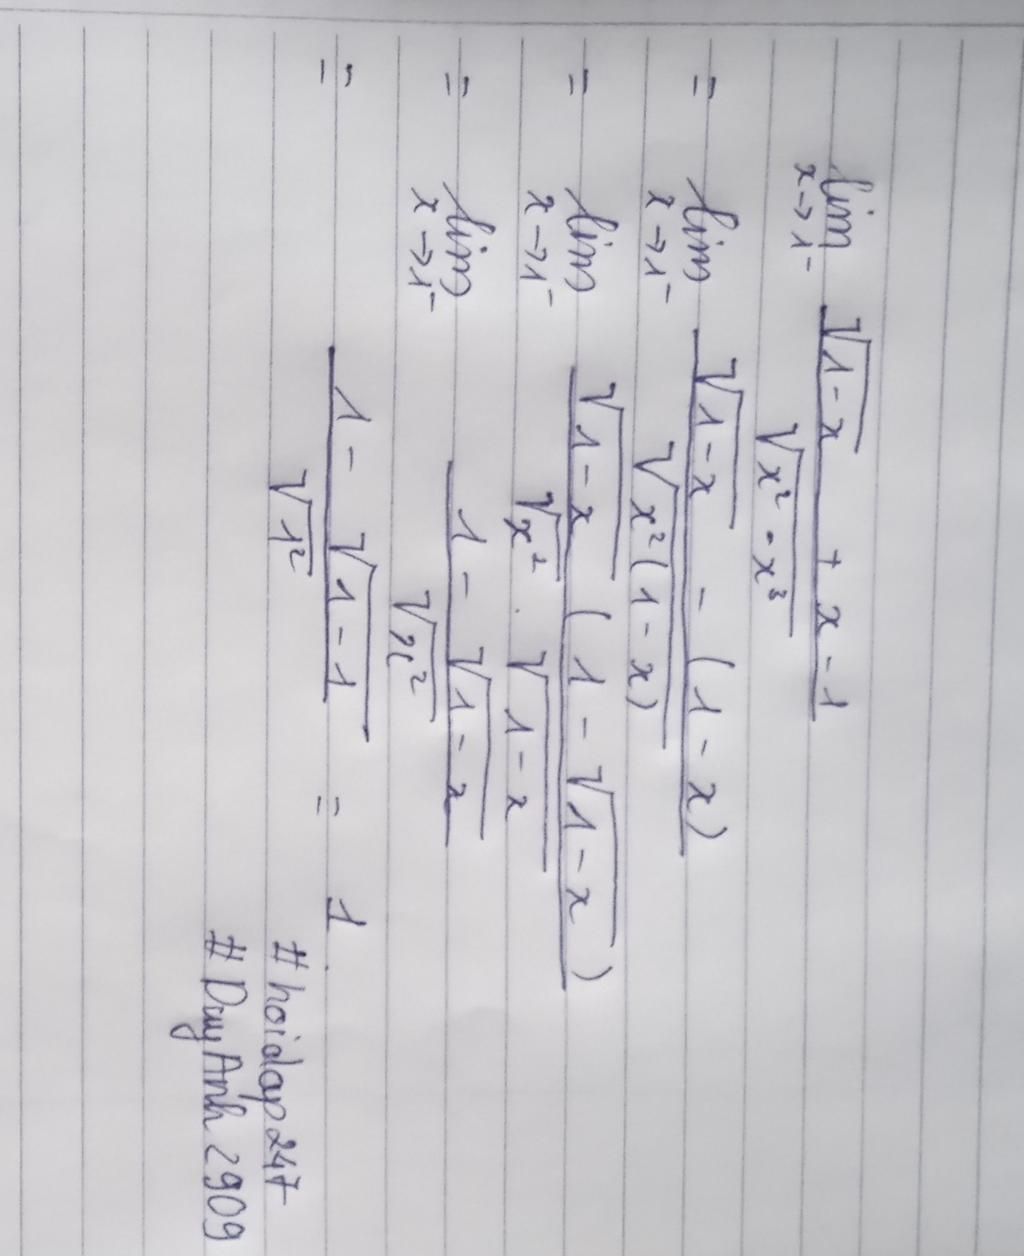 lim x→1⁻ (√(1-x) + x-1)/√(x²-x³)
= lim x→1⁻ (√(1-x) - (1-x))/√(x²(1-x))
= lim x→1⁻ (√(1-x) (1-√(1-x)))/(√x² . √(1-x))
= lim x→1⁻ (1-√(1-x))/√x²
= (1-√(1-1))/√1² = 1.
#hoidap247
#DuyAnh2909